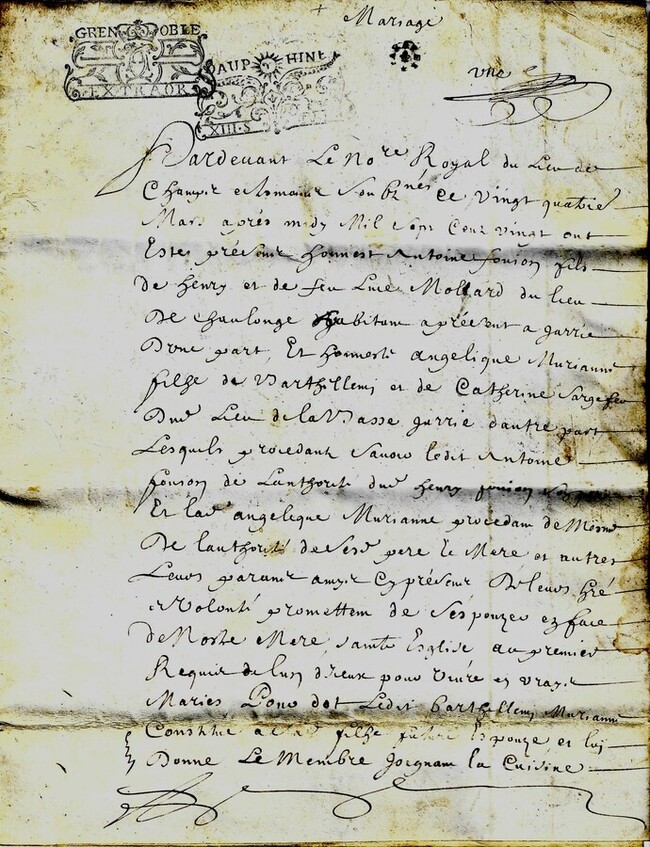 Mariage
GRENOBLE
EXTRAOR
DAUPHINE
XIII·S
vne
Pardevant Le No.re Royal du Lieu de
Champ et Soubz.nés ce vingt quatre
Mars après midy Mil sept Cent vingt ont
Estes présent honnest Antoine fouion fils
de henry et de feu Mollard du lieu
De chaulonge habitant apréent a jarrie
D'une part, Et honneste angelique Murianne
filhe de Barthillemi et de Catherine
Dud Lieu de la Basse jarrie d'autre part
Lesquels procedant savoir ledit Antoine
fouion de L'authorite dud henry fouion
Et lad angelique Murianne procedant de Mesme
De l'authorité de sesd pere le Mere et autres
Leurs parant amys Cy présent De leurs gré
et Volonté promettent de s'espouzer en face
de Nostre Mere sainte Esglise au premier
Requis de lun d'ieux pour vivre en vrays
Maries Pour dot Ledit barthillemi Murianne
Constitue a lad filhe future Espouze et luj
Donne Le Membre joignant la Cuisine